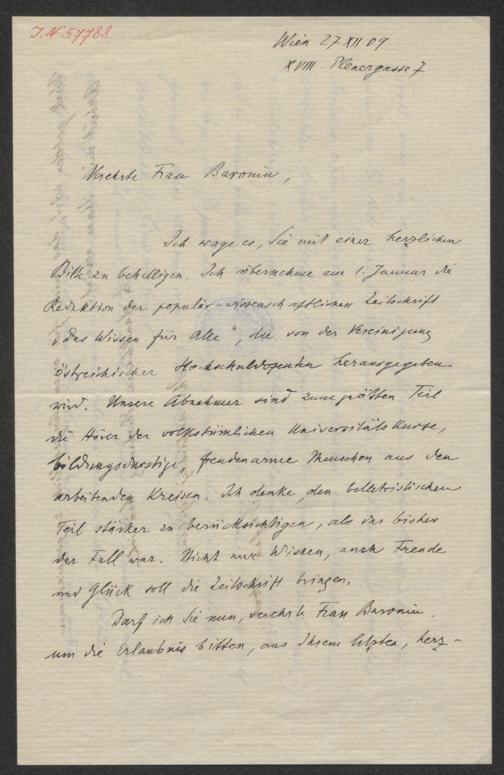 I.N. 57788
Wien 27 XII 09
XVIII. Plenergasse 7
Verehrte Frau Baronin,
Ich wage es, Sie mit einer herzlichen
Bitte zu behelligen. Ich übernehme am 1. Januar die
Redaktion der populär-wissenschaftlichen Zeitschrift
„Das Wissen für Alle", die von der Vereinigung
östreichischer Hochschuldozenten herausgegeben
wird. Unsere Abnehmer sind zum größten Teil
die Hörer der volkstümlichen Universitätskurse,
bildungsdurstige, freudenarme Menschen aus den
arbeitenden Kreisen. Ich denke, den belletristischen
Teil stärker zu berücksichtigen, als das bisher
der Fall war. Nicht nur Wissen, auch Freude
und Glück soll die Zeitschrift bringen.
Darf ich Sie nun, verehrte Frau Baronin,
um die Erlaubnis bitten, aus Ihrem letzten, herz-